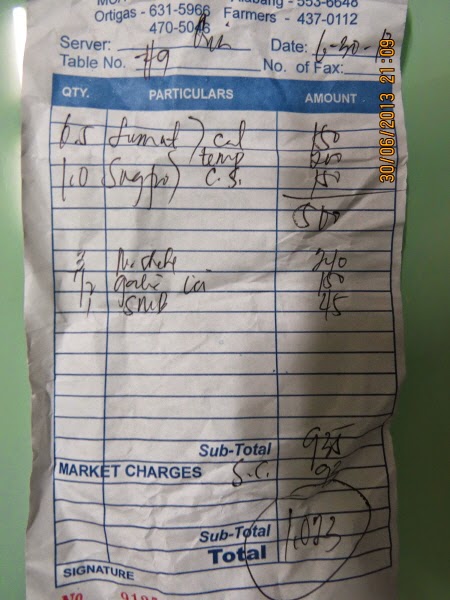 Alabang - 553-6648
Ortigas - 631-5966 Farmers - 437-0112
470-5046
Server: Date: 6-30-13
Table No. #9 No. of Fax:
QTY. PARTICULARS AMOUNT
0.5 cal 150
temp 200
1.0 C.S. 150
500
3 M. shake 240
1/2 garlic 150
1 SMB 45
Sub-Total 935
MARKET CHARGES S.C.
Sub-Total
Total 1,023
SIGNATURE
No.
30/06/2013 21:09